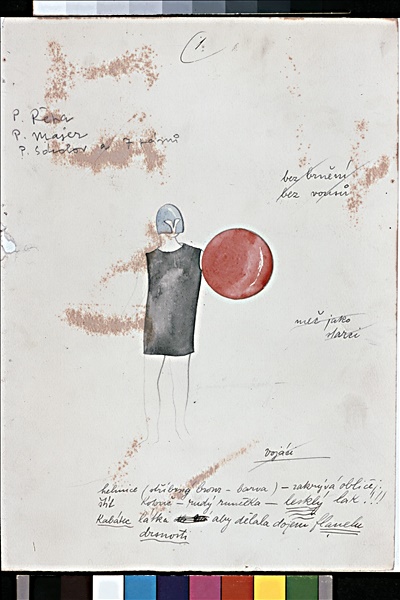 1.
P. Řépa
P. Majer
P. Sokolov a 7 pánů
bez brnění
bez vousů
meč jako
starci
vojáci
helmice (stříbrný bronz - barva) - zakrývá obličej.
štít kotouč - rudý runělka - lesklý lak!!!
Kabátec látka aby dělala dojem flanelu
drsnosti